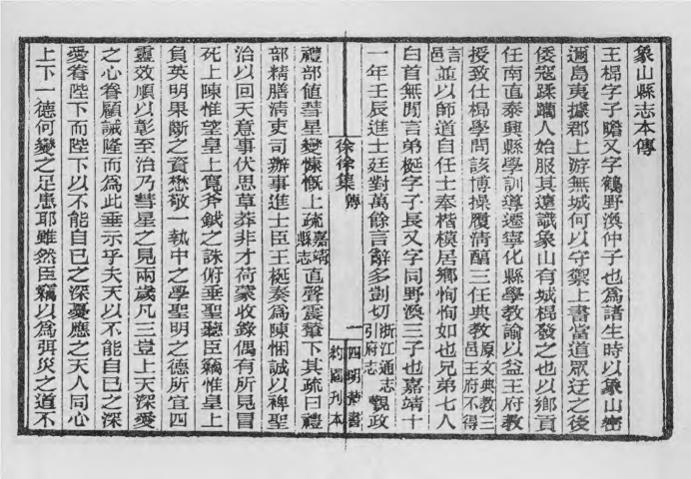 象山縣志本傳
王字子瞻又字鶴野渙仲子也爲諸生時以象山密
邇島夷據郡上游無城何以守禦上書當道眾迂之後
倭寇蹂躪人始服其遠識象山有城發之也以鄉貢
任南直泰興縣學訓導遷寧化縣學教諭以益王府教
授致仕學問該博操履清醕三任典教原文典教三邑王府不得
言邑並以師道自任士奉楷模居鄉恂恂如也兄弟七人
白首無閒言弟梴字子長又字同野渙三子也嘉靖十
一年壬辰進士廷對萬餘言辭多剴切浙江通志引府志觀政
徐徐集 傳 一 四明叢書 約園刊本
禮部値彗星變慷慨上疏嘉靖縣志直聲震輦下其疏曰禮
部精膳清吏司辦事進士臣王梴奏爲陳悃誠以裨聖
治以回天意事伏思草莽非才荷蒙收錄偶有所見冒
死上陳惟望皇上寬斧鉞之誅俯垂聖聽臣竊惟皇上
負英明果斷之資懋敬一執中之學聖明之德所宜四
靈效順以彰至治乃彗星之見兩歲凡三豈上天深愛
之心眷顧誠隆而爲此垂示乎夫天以不能自已之深
愛眷陛下而陛下以不能自已之深憂應之天人同心
上下一德何變之足患耶雖然臣竊以爲弭災之道不